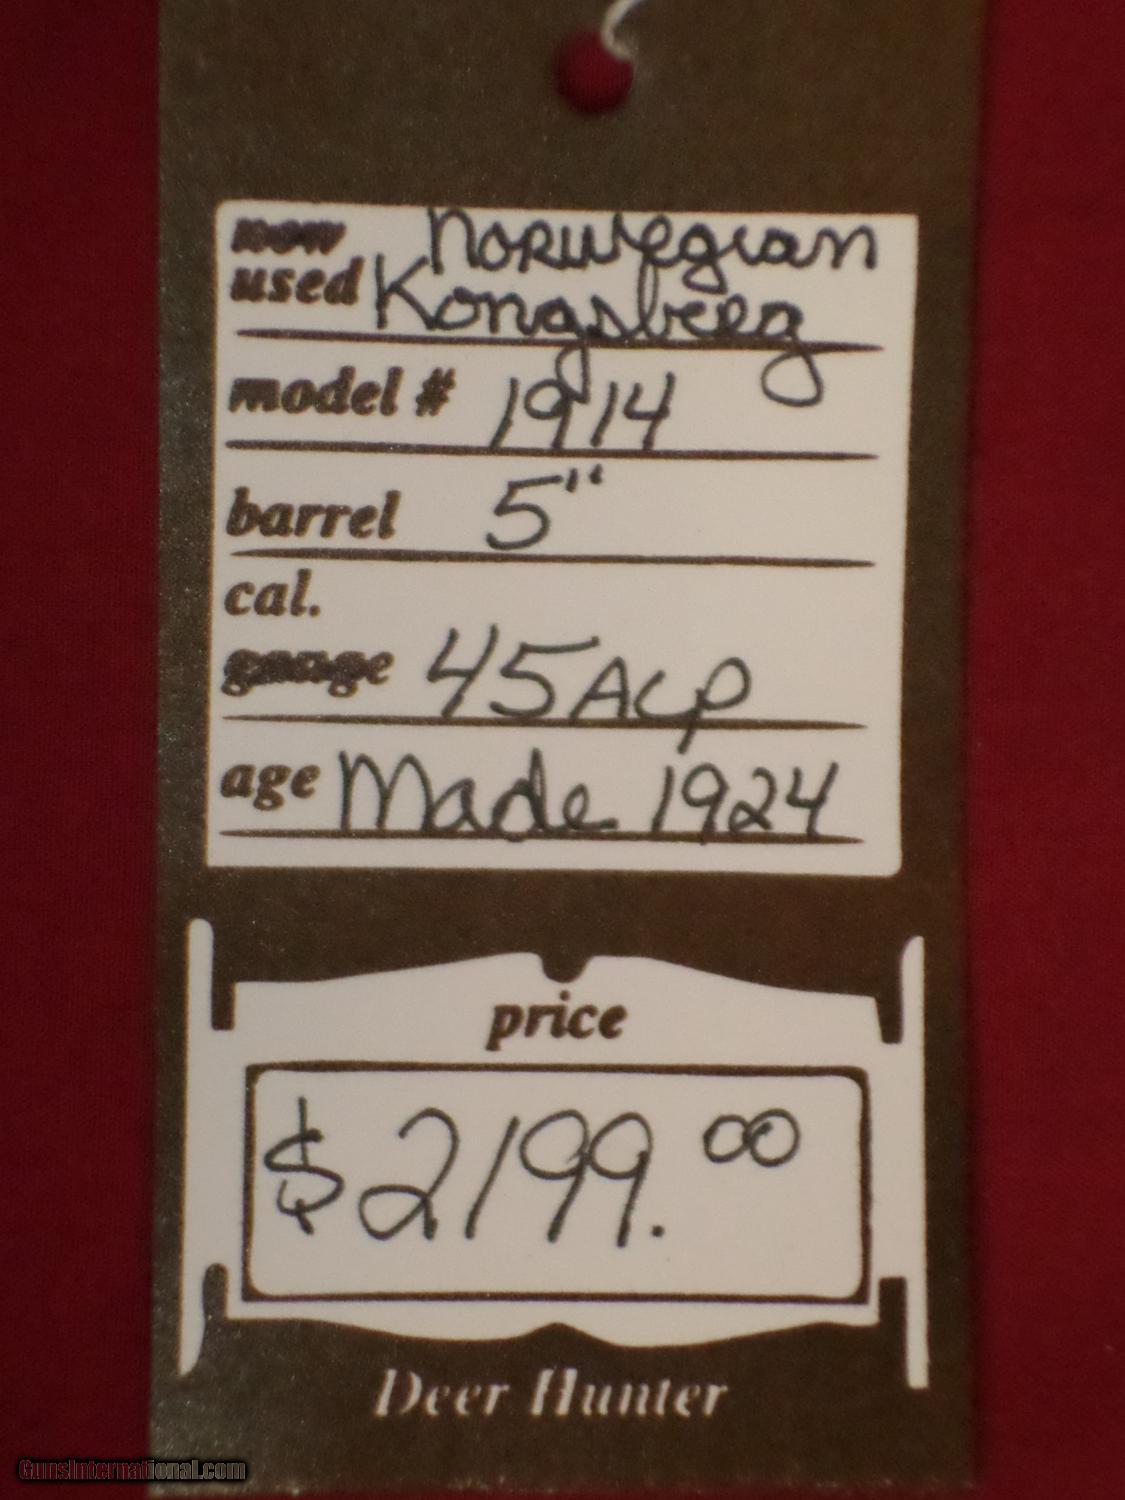 new Norwegian
used Kongsberg
model # 1914
barrel 5"
cal.
gauge 45 ACP
age Made 1924
price
$2199.00
Deer Hunter
GunsInternational.com